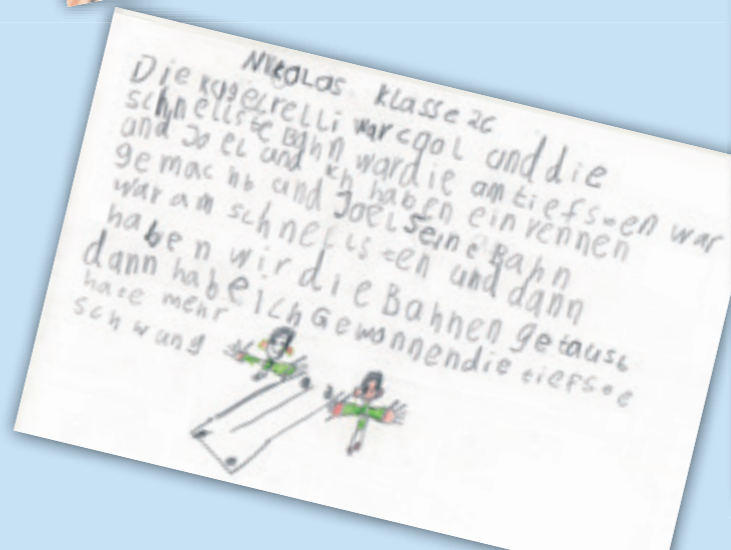 Nikolas Klasse 2c
Die kugelrelli war cool und die
schnellste Bahn war die am tiefsten war
und Joel und ich haben ein rennen
gemacht und Joel seine Bahn
war am schnellsten und dann
haben wir die Bahnen getaust
dann habe ich Gewonnen die tiefste
hate mehr
schwung